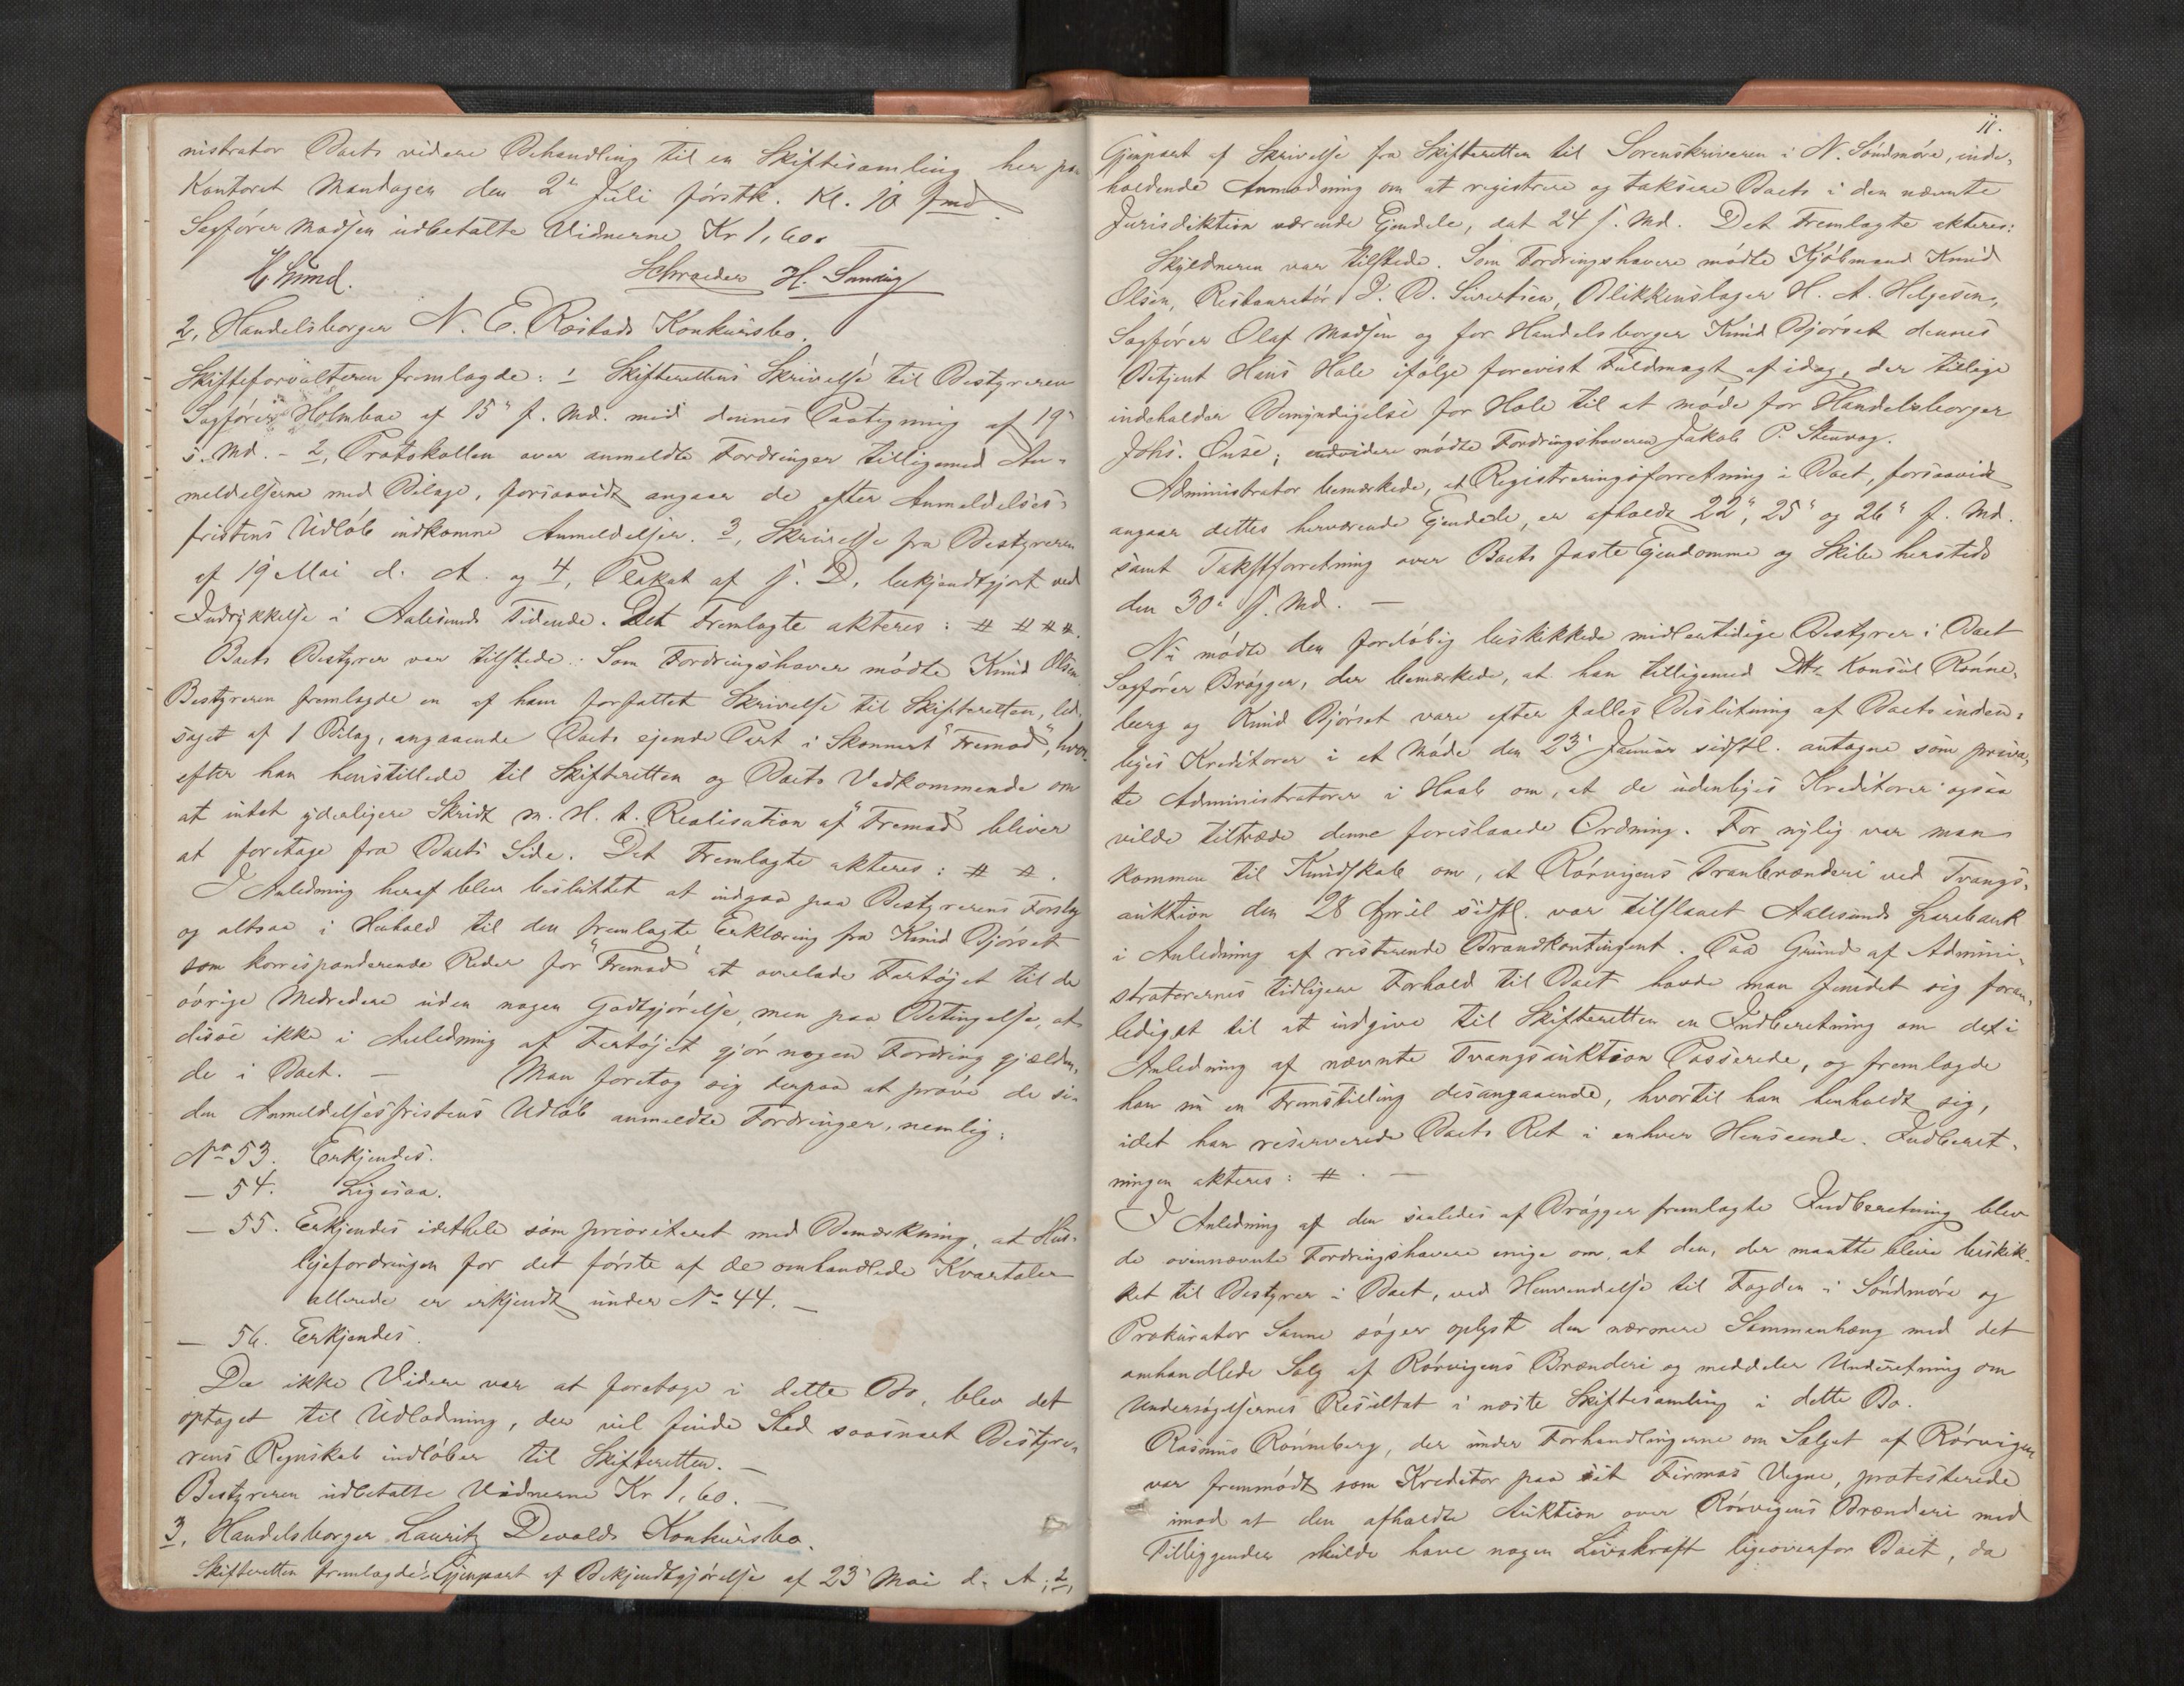 nistrator Boets videre Behandling til en Skiftesamling her paa
Kontoret Mandagen den 2den Juli førstk. Kl. 10 fmd.
Sagfører Madsen udbetalte Vidnerne Kr 1,60.
Schrøder H. Landing
2, Handelsborger N. E. Røstads Konkursbo.
Skifteforvalteren fremlagde: 1 Skifterettens Skrivelse til Bestyreren
Sagfører Holmboe af 15de f. Md. med dennes Paategning af 19de
s. Md. - 2, Protokollen over anmeldte Fordringer tilligemed An-
meldelserne med Bilage, forsaavidt angaar de efter Anmeldelses-
fristens Udløb indkomne Anmeldelser. 3, Skrivelse fra Bestyreren
af 19 Mai d. A. og 4, Plakat af s. D. bekjendtgjort ved
Indrykkelse i Aalesunds Tidende. Det Fremlagte akteres: # # # #.
Boets Bestyrer var tilstede. Som Fordringshaver mødte Knud Olsen.
Bestyreren fremlagde en af ham forfattet Skrivelse til Skifteretten, led-
saget af 1 Bilag, angaaende Boets ejende Part i Skonnert "Fremad", hvor-
efter han henstillede til Skifteretten og Boets Vedkommende om
at intet yderligere Skridt m. H. t. Realisation af "Fremad" bliver
at foretage fra Boets Side. Det Fremlagte akteres: # #.
I Anledning heraf blev besluttet at indgaa paa Bestyrerens Forslag
og altsaa i Henhold til den fremlagte Erklæring fra Knud Bjørset
som korresponderende Reder for "Fremad" at overlade Fartøjet til de
øvrige Medredere uden nogen Godtgjørelse, men paa Betingelse, at
disse ikke i Anledning af Fartøjet gjør nogen Fordring gjælden-
de i Boet. — Man foretog sig derpaa at prøve de si-
den Anmeldelsesfristens Udløb anmeldte Fordringer, nemlig:
No 53. Erkjendes.
— 54. Ligesaa.
— 55. Erkjendes idethele som prioriteret med Bemærkning, at Hus-
lejefordringen for det første af de omhandlede Kvartaler
allerede er erkjendt under No 44. —
— 56. Erkjendes.
Da ikke Videre var at foretage i dette Bo, blev det
optaget til Udlodning, der vil finde Sted saasnart Bestyre-
rens Regnskab indløber til Skifteretten. —
Bestyreren udbetalte Vidnerne Kr 1,60. —
3, Handelsborger Lauritz Devolds Konkursbo.
Skifteretten fremlagde: Gjenpart af Bekjendtgjørelse af 23de Mai d. A.; 2,
11.
Gjenpart af Skrivelse fra Skifteretten til Sorenskriveren i N. Søndmøre, inde-
holdende Anmodning om at registrere og taksere Boets i den nævnte
Jurisdiktion værende Ejendele, dat 24 f. Md. Det Fremlagte akteres:
Skyldneren var tilstede. Som Fordringshavere mødte Kjøbmand Knud
Olsen, Restauratør J. B. Sivertsen, Blikkenslager H. A. Helgesen,
Sagfører Olaf Madsen og for Handelsborger Knud Bjørset dennes
Betjent Hans Hole ifølge forevist Fuldmagt af idag, der tillige
indeholder Bemyndigelse for Hole til at møde for Handelsborger
Johs. Ouse; endvidere mødte Fordringshaveren Jakob P. Stenvog.
Administrator bemærkede, at Registreringsforretning i Boet, forsaavidt
angaar dettes herværende Ejendele, er afholdt 22de, 25de og 26de f. Md.
samt Takstforretning over Boets faste Ejendomme og Skibe hersteds
den 30de f. Md. —
Nu mødte den foreløbig beskikkede midlertidige Bestyrer i Boet
Sagfører Brøgger, der bemærkede, at han tilligemed DHr. Konsul Rønne-
berg og Knud Bjørset vare efter fælles Beslutning af Boets inden-
bys Kreditorer i et Møde den 23de Januar sidstl. antagne som priva-
te Administratorer i Haab om, at de udenbys Kreditorer ogsaa
vilde tiltræde denne foreslaaede Ordning. For nylig var man
kommen til Kundskab om, at Rørvigens Tranbrænderi ved Tvangs-
auktion den 28 April sidstl. var tilslaaet Aalesunds Sparebank
i Anledning af resterende Brandkontingent. Paa Grund af Admini-
stratorernes tidligere Forhold til Boet havde man fundet sig foran-
lediget til at indgive til Skifteretten en Indberetning om det i
Anledning af nævnte Tvangsauktion Passerede, og fremlagde
han nu en Fremstilling desangaaende, hvortil han henholdt sig,
idet han reserverede Boets Ret i enhver Henseende. Indberet-
ningen akteres: #. —
I Anledning af den saaledes af Brøgger fremlagte Indberetning blev
de ovennævnte Fordringshavere enige om, at den, der maatte blive beskik-
ket til Bestyrer i Boet, ved Henvendelse til Fogden i Søndmøre og
Prokurator Sanne søger oplyst den nærmere Sammenhæng med det
omhandlede Salg af Rørvigens Brænderi og meddeler Underretning om
Undersøgelsernes Resultat i næste Skiftesamling i dette Bo.
Rasmus Rønneberg, der under Forhandlingerne om Salget af Rørvigen
var fremmødt som Kreditor paa sit Firmas Vegne, protesterede
imod at den afholdte Auktion over Rørvigens Brænderi med
Tilliggender skulde have nogen Livskraft ligeoverfor Boet, da